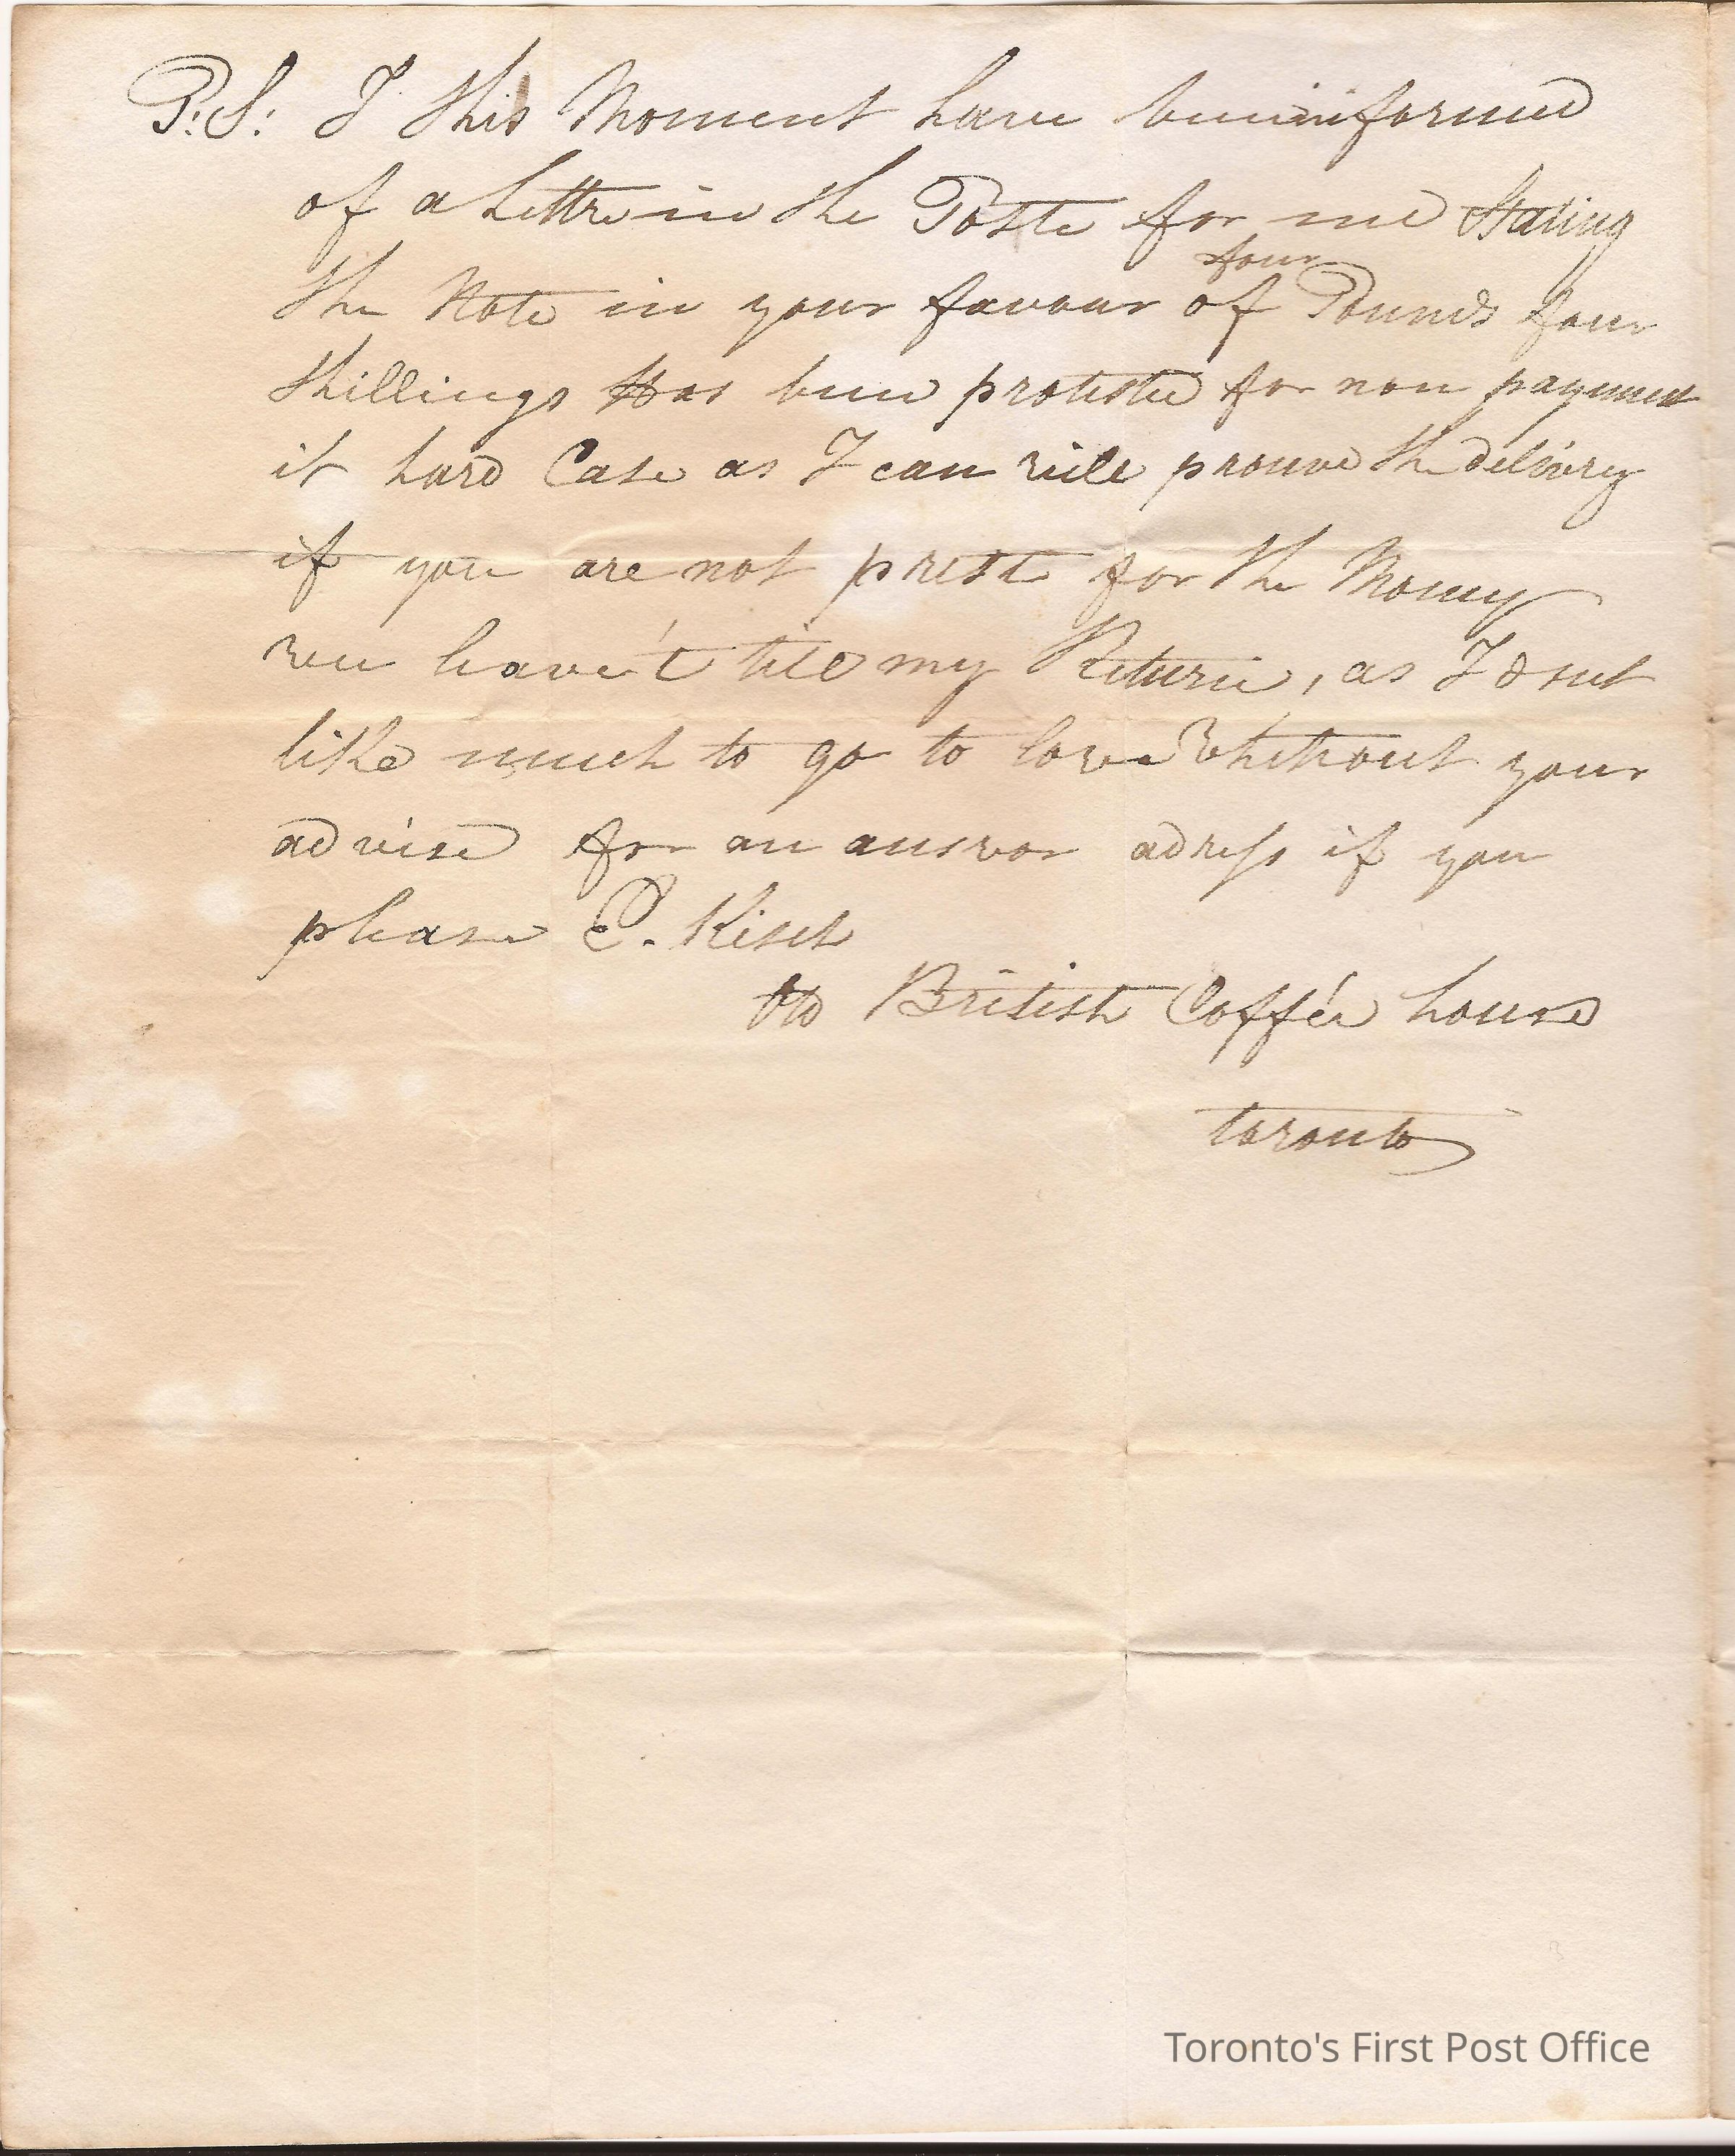 P.S: I this Moment have been informed
of a Lettre in the Poste for me Stating
four
the Note in your favour of Pounds four
Shillings Has been protested for non payment
it hard Case as I can will prouve the delivrey
if you are not prest for the Money
wee leave't till my Return, as I dont
like much to go to lowe Whithout your
advise for an answor adress if you
please E. Kisch
Old British Coffée house
toronto
Toronto's First Post Office